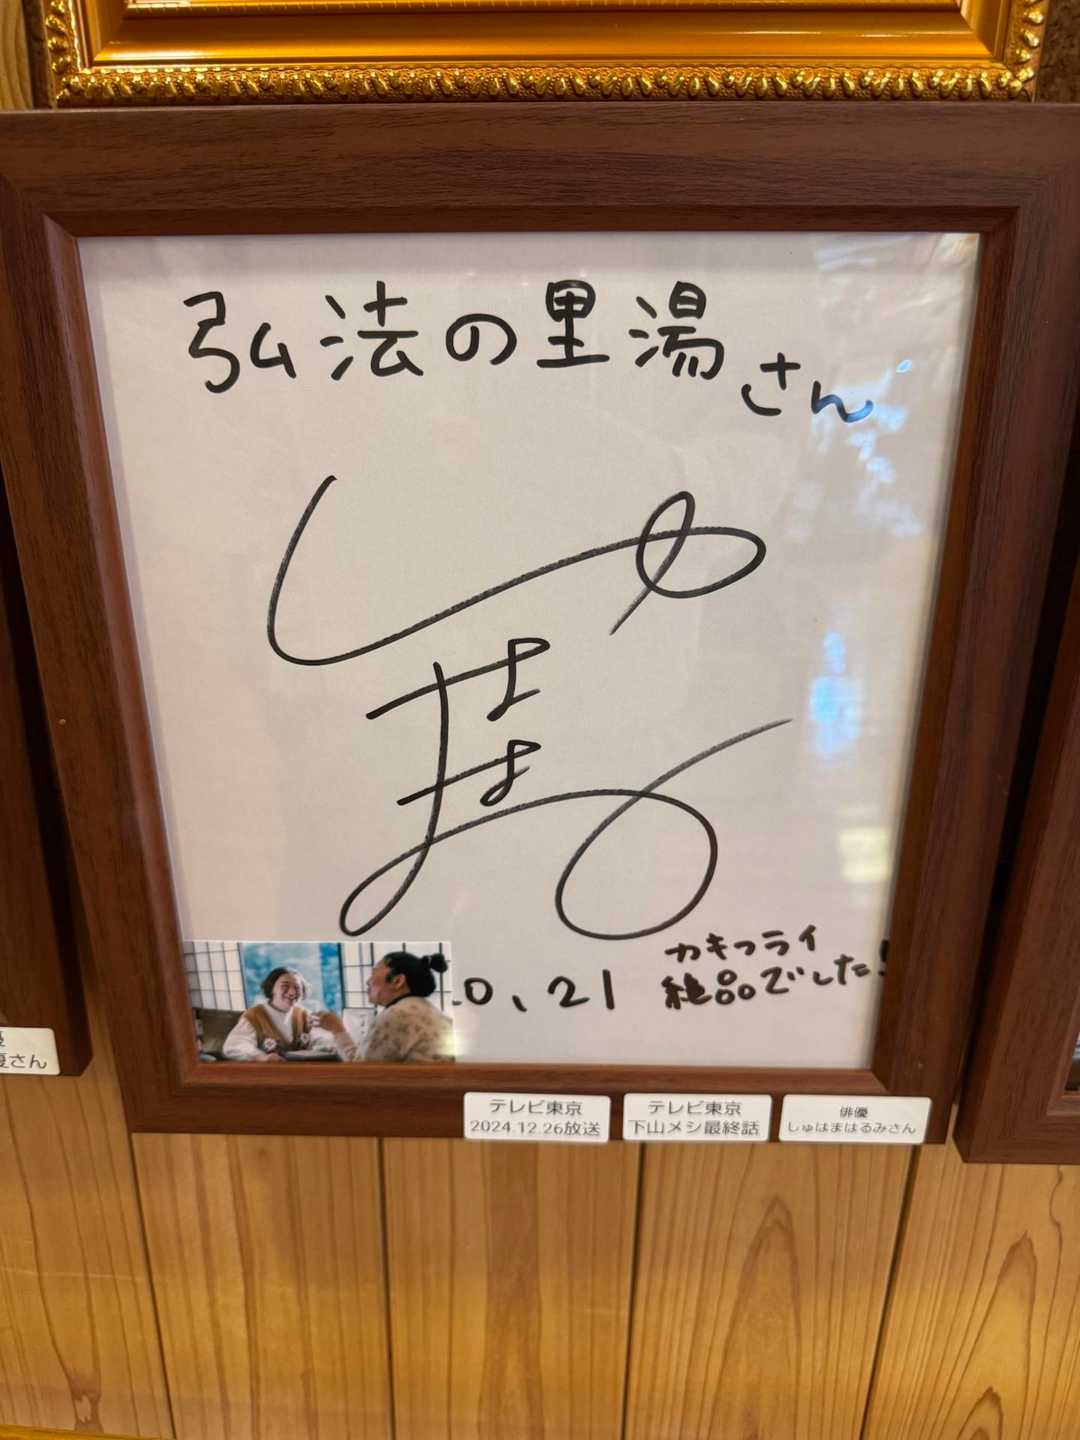 弘法の里湯さん
しゅはまはる
カキフライ
絶品でした!
.0.21
テレビ東京
2024.12.26放送
テレビ東京
下山メシ最終話
俳優
しゅはまはるみさん
優
さん